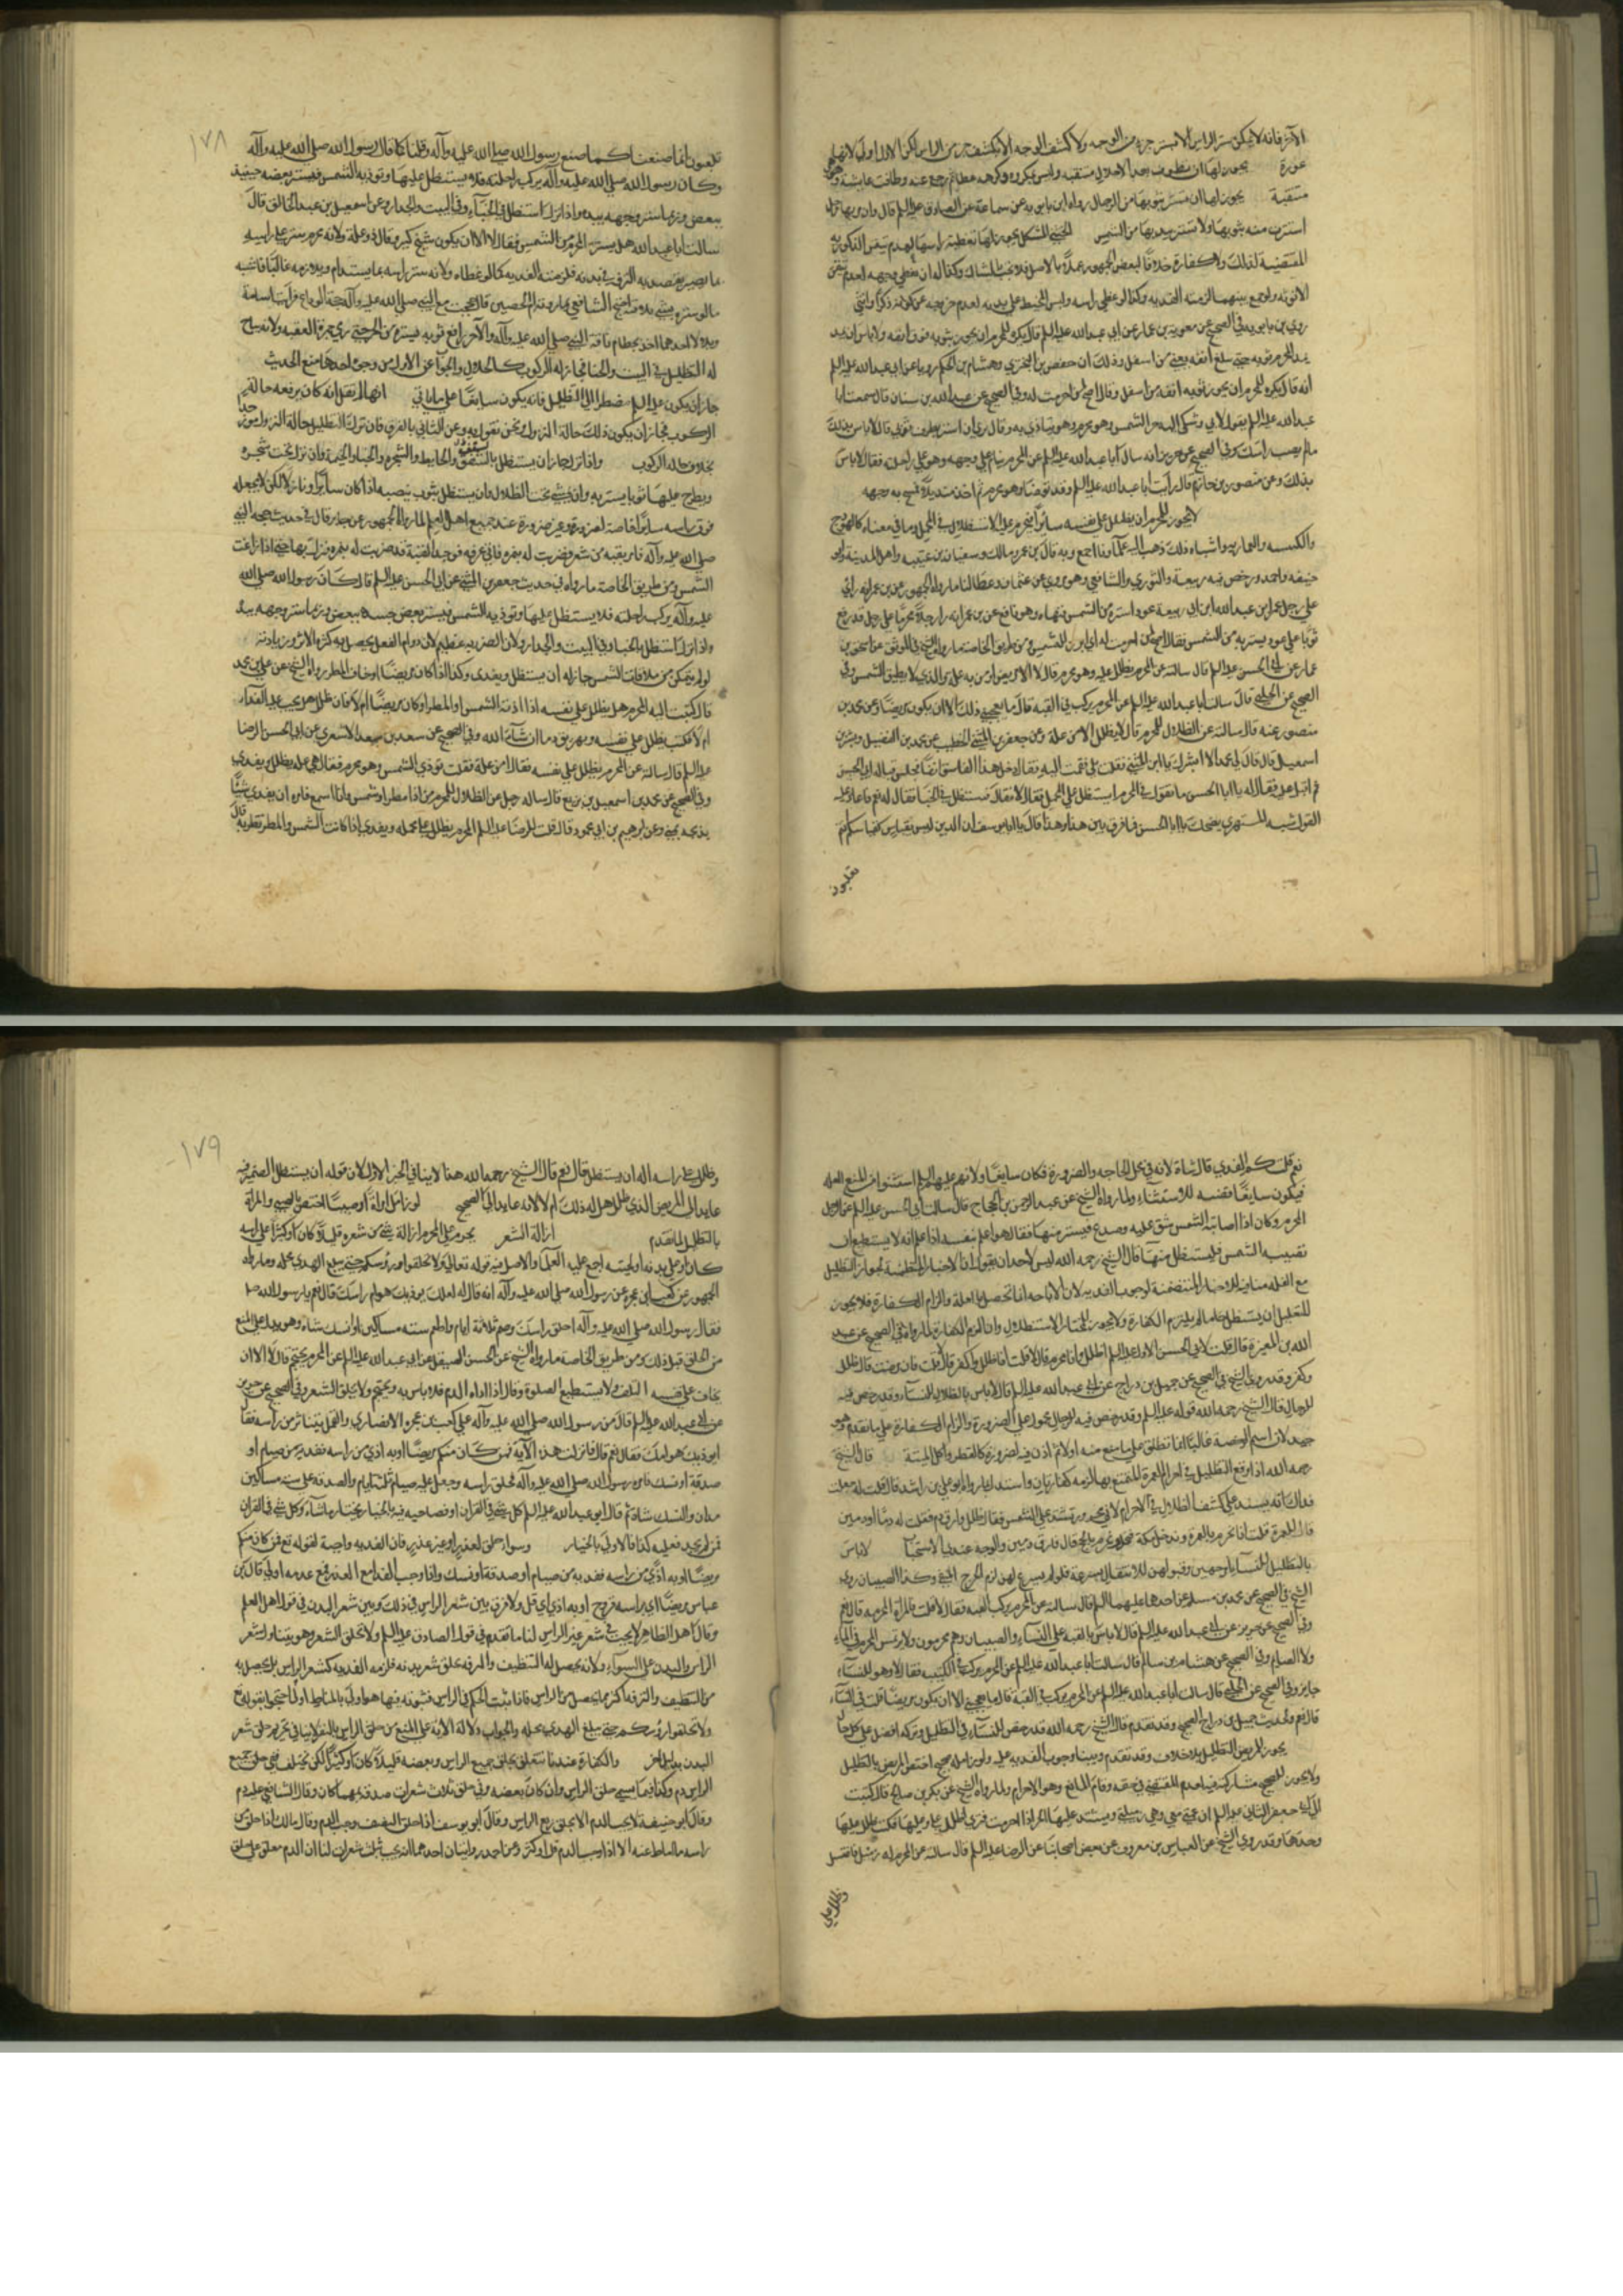 الآخر فانه لا يمكن ستر الراس الا بستر جزء من الوجه ولا كشف الوجه الا بكشف جزء من الراس لكن الاول اولى لانها
عورة يجوز لها ان تطوف منتقبة وليس بمكروه وكرهه عطا ثم رجع عنه وطافت عايشة وهي
متنقبة يجوز لها ان تستتر بثوبها من الرجال رواه ابن بابويه عن سماعة عن الصادق عليه السلم قال وان مر بها رجل
استترت منه بثوبها ولا تستتر بيدها من الشمس الخنثى المشكل يجوز لها تغطية راسها لعدم تيقن الذكورية
المقتضية لذلك ولا كفارة خلافا لبعض الجمهور عملا بالاصل فلا يجب بالشك وكذا له ان يغطي وجهه لعدم تيقن
الانوثة ولو جمع بينهما لزمته الفدية وكذا لو غطى راسه ولبس المخيط على بدنه لعدم خروجه عن كونه ذكرا وانثى
روى ابن بابويه في الصحيح عن معوية بن عمار عن ابي عبد الله عليه السلم قال يكره للمحرم ان يجوز ثوبه فوق انفه ولا باس ان يمد
يمد المحرم ثوبه حتى يبلغ انفه يعني من اسفل وذلك ان حفص بن البختري وهشام بن الحكم رويا عن ابي عبد الله عليه السلم
انه قال يكره للمحرم ان يجوز ثوبه انفه من اسفل وقال اضح لمن احرمت له وفي الصحيح عن عبد الله بن سنان قال سمعت ابا
عبد الله عليه السلم يقول لابي وشكى اليه حر الشمس وهو محرم وهو يتاذى به وقال ترى ان استتر بطرف ثوبي قال لا باس بذلك
ما لم يصب راسك وفي الصحيح عن حريز انه سال ابا عبد الله عليه السلم عن المحرم ينام على وجهه وهو على راحلته فقال لا باس
بذلك وعن منصور بن حازم قال رايت ابا عبد الله عليه السلم وقد توضا وهو محرم ثم اخذ منديلا فمسح به وجهه
لا يجوز للمحرم ان يظلل على نفسه سايرا فيحرم عليه الاستظلال في المحمل وما في معناه كالهودج
والكنيسة والعمارية واشباه ذلك ذهب اليه علماؤنا اجمع وبه قال بن عمر ومالك وسفيان بن عيينه واهل المدينة وابو
حنيفه واحمد ورخص فيه ربيعة والثوري والشافعي وهو مروي عن عثمان وعطا لنا ما رواه الجمهور عن بن عمر انه راى
على رحل عمر ابن عبد الله ابن ابي ربيعة عودا يستره من الشمس فنهاه وعن نافع عن بن عمر انه راى رجلا محرما على رحل قد رفع
ثوبا على عود يستر به من الشمس فقال اضح لمن احرمت له اي ابرز للشمس ومن طريق الخاصة ما رواه الشيخ في الموثق عن اسحق بن
عمار عن ابي الحسن عليه السلم قال سالته عن المحرم يظلل عليه وهو محرم قال لا الا مريض او من به علة والذي لا يطيق الشمس وفي
الصحيح عن الحلبي قال سالت ابا عبد الله عليه السلم عن المحرم يركب في القبة قال ما يعجبني ذلك الا ان يكون مريضا وعن محمد بن
منصور عنه قال سالته عن الظلال للمحرم قال لا يظلل الا من علة وعن جعفر بن المثنى الخطيب عن محمد بن الفضيل وبشر بن
اسمعيل قال قال لي محمد الا ابشرك يا ابن المثنى فقلت بلى فقمت اليه فقال دخل هذا الفاسق انفا فجلس قبالة ابي الحسن
ثم اقبل عليه فقال له يا ابا الحسن ما تقول في المحرم ايستظل على المحمل فقال لا فقال فيستظل في الخبا فقال له نعم فاعاد عليه
القول شبه المستهزئ يضحك يا ابا الحسن فما فرق بين هذا وهذا قال يا ابا يوسف ان الدين ليس بقياس كقياسكم انتم
تلعبون
١٧٨
تلعبون انما صنعنا كما صنع رسول الله صلى الله عليه وآله وقلنا كما قال رسول الله صلى الله عليه وآله
وكان رسول الله صلى الله عليه وآله يركب راحلته فلا يستظل عليها وتوذيه الشمس فيستر بعضه جسده
ببعض وربما ستر وجهه بيده واذا نزل استظل في الخباء وفي البيت والجدار وعن اسمعيل بن عبد الخالق قال
سالت ابا عبد الله هل يستتر المحرم من الشمس فقال لا الا ان يكون شيخ كبير وقال ذو علة ولانه محرم ستر على راسه
ما يقصد به الترفه في بدنه فلزمته الفدية كما لو غطاه ولانه ستر راسه بما يستدام ويلازمه غالبا فاشبه
ما لو ستره بشي يلاقيه احتج الشافعي بما روته ام الحصين قالت حججت مع النبي صلى الله عليه وآله حجة الوداع فرايت اسامة
وبلالا احدهما اخذ بخطام ناقة النبي صلى الله عليه وآله والآخر رافع ثوبه يستره من الحر حتى رمى جمرة العقبة ولانه يباح
له التظليل في البيت والخبا فجاز له الركوب كالحلال والجواب عن الاول من وجوه احدها منع الحديث
جاز ان يكون عليه السلم مضطرا الى التظليل فانه يكون سايغا على ما ياتي انها لم تقل انه كان يرفعه حالة
الركوب فجاز ان يكون ذلك حالة النزول ونحن نقول به وعن الثاني بالفرق فان ترك التظليل حالة النزول
بخلاف حالة الركوب واذا نزل جاز ان يستظل بالسقف والحايط والشجرة والخباء والخيمة وان نزل تحت شجرة
ويطرح عليها ثوبا يستتر به وان يمشي تحت الظلال وان يستظل بثوب ينصبه اذا كان سايرا ونازلا لكن لا يجعله
فوق راسه سايرا خاصة لضرورة وغير ضرورة عند جميع اهل العلم لما رواه الجمهور عن جابر قال في حديث حجة النبي
صلى الله عليه وآله فامر بقبة من شعر فضربت له بنمرة فاتى عرفة فوجد القبة قد ضربت له بنمرة فنزل بها حتى اذا زاغت
الشمس ومن طريق الخاصة ما رواه في حديث جعفر بن المثنى عن ابي الحسن عليه السلم قال كان رسول الله صلى الله
عليه وآله يركب راحلته فلا يستظل عليها وتوذيه الشمس فيستر بعض جسده ببعض وربما ستر وجهه بيده
واذا نزل استظل بالخبا وفي البيت والجدار ولان الضرر به عظيم لان دوام الفعل يحصل به كثرة الاثر وزيادته
لو لم يتمكن من ملاقات الشمس جاز له ان يستظل ويفدي وكذا اذا كان مريضا او خاف المطر رواه الشيخ عن علي بن محمد
قال كتبت اليه المحرم هل يظلل على نفسه اذا اذته الشمس او المطر او كان مريضا ام لا فان ظلل هل يجب عليه الفداء
ام لا فكتب يظلل على نفسه ويهريق دما ان شاء الله وفي الصحيح عن سعد بن سعد الاشعري عن ابي الحسن الرضا
عليه السلم قال سالته عن المحرم يظلل على نفسه فقال امن علة فقلت توذي الشمس وهو محرم فقال هي علة يظلل ويفدي
وفي الصحيح عن محمد بن اسمعيل بن بزيع قال ساله رجل عن الظلال للمحرم من اذا مطر او شمس وانا اسمع فامره ان يفدي شاة
يذبحه بمنى وعن ابراهيم بن ابي محمود قال قلت للرضا عليه السلم المحرم يظلل على محمله ويفدي اذا كانت الشمس والمطر تضر به قال
نعم قلت كم الفدي قال شاة لانه في محل الحاجة والضرورة فكان سايغا ولانهم عليهم السلم استثنوا من المنع العلة
فيكون سايغا قضية للاستثناء ولما رواه الشيخ عن عبد الرحمن بن الحجاج قال سالت ابي الحسن عليه السلم عن الرجل
المحرم وكان اذا اصابته الشمس شق عليه وصدع فيستتر منها فقال هو اعلم بنفسه اذا علم انه لا يستطيع ان
تصيبه الشمس فليستظل منها قال الشيخ رحمه الله ليس لاحد ان يقول ان الاخبار المتضمنة لجواز التظليل
مع العلة منافية للاخبار المتضمنة لوجوب الفدية لان الاباحة انما تحصل مع العلة والزام الكفارة فلا يجوز
للعليل ان يستظل ما لم يلتزم الكفارة ولا يجوز للمختار الاستظلال وان التزم الكفارة لما رواه في الصحيح عن عبد
الله بن المغيرة قال قلت لابي الحسن الاول عليه السلم اظلل وانا محرم قال لا قلت افاظلل واكفر قال لا قلت فان مرضت قال ظلل
وكفر وقد روى الشيخ في الصحيح عن جميل بن دراج عن ابي عبد الله عليه السلم قال لا باس بالظلال للنساء وقد رخص فيه
للرجال قال الشيخ رحمه الله قوله عليه السلم وقد رخص فيه للرجال محمول على الضرورة والزام الكفارة على ما تقدم وهو
جيد لان اسم الرخصة غالبا انما تطلق على ما منع منه اولا ثم اذن فيه لضرورة كالفطر واكل الميتة قال الشيخ
رحمه الله اذا رفع التظليل في احرام العمرة المتمتع بها لزمه كفارتان واستند لما رواه ابو علي بن راشد قال قلت له جعلت
فداك انه يشتد على كشف الظلال في الاحرام لاني محرور تشتد علي الشمس فقال ظلل وارق دم فقلت له دما او دمين
قال للعمرة قلت انا نحرم بالعمرة وندخل مكة فنحل ونحرم بالحج قال فارق دمين والوجه عندي الاستحباب لا باس
بالتظليل للنساء لرخصهن وقبولهن للانتقال بسرعة فلو لم يسغ لهن لزم الحرج وكذا الصبيان روى
الشيخ في الصحيح عن محمد بن مسلم عن احدهما عليهما السلم قال سالته عن المحرم يركب القبة فقال لا قلت فالمراة المحرمة قال نعم
وفي الصحيح عن حريز عن ابي عبد الله عليه السلم قال لا باس بالقبة على النساء والصبيان وهم محرمون ولا يرتمس المحرم في الماء
ولا الصايم وفي الصحيح عن هشام بن سالم قال سالت ابا عبد الله عليه السلم عن المحرم يركب في الكنيسة فقال لا وهو للنساء
جايز وفي الصحيح عن الحلبي قال سالت ابا عبد الله عليه السلم عن المحرم يركب في القبة قال ما يعجبني الا ان يكون مريضا قلت فالنساء
قال نعم ولحديث جميل بن دراج الصحيح وقد تقدم قال الشيخ رحمه الله قد رخص للنساء في التظليل وتركه افضل على كل حال
يجوز للمريض التظليل بلا خلاف وقد تقدم وبينا وجوب الفدية عليه ولو زامله صحيح اختص المريض بالتظليل
ولا يجوز للصحيح مشاركته فيه لعدم المقتضي في حقه وقيام المانع وهو الاحرام ولما رواه الشيخ عن بكر بن صالح قال كتبت
الى ابي جعفر الثاني عليه السلم ان عمتي معي وهي زميلتي ويشتد عليها الحر اذا احرمت فترى لي اظلل علي وعليها فكتب ظلل عليها
وحدها وقد روى الشيخ عن العباس بن معروف عن بعض اصحابنا عن الرضا عليه السلم قال سالته عن المحرم له زميل فاعتل
وظلل على
١٧٩
وظلل على راسه اله ان يستظل قال نعم قال الشيخ رحمه الله هذا لا ينافي الخبر الاول لان قوله ان يستظل الضمير فيه
عايد الى المريض الذي ظلل هل له ذلك ام لا لانه عايد الى الصحيح لو زامل امراة او صبيا اختص الصبي والمراة
بالتظليل لما تقدم ازالة الشعر يحرم على المحرم ازالة شيء من شعره قليلا كان او كثيرا على راسه
كان او على بدنه او لحيته اجمع عليه العلماء والاصل فيه قوله تعالى ولا تحلقوا رؤسكم حتى يبلغ الهدي محله وما رواه
الجمهور عن كعب ابن عجرة عن رسول الله صلى الله عليه وآله انه قال له لعلك يوذيك هوام راسك قال نعم يا رسول الله
فقال رسول الله صلى الله عليه وآله احلق راسك وصم ثلاثة ايام واطعم ستة مساكين او انسك شاة وهو يدل على المنع
من الحلق قبل ذلك ومن طريق الخاصة ما رواه الشيخ عن الحسن الصيقل عن ابي عبد الله عليه السلم عن المحرم يحتجم قال لا الا ان
يخاف على نفسه التلف ولا يستطيع الصلوة وقال اذا اذاه الدم فلا باس به ويحتجم ولا يحلق الشعر وفي الصحيح عن حريز
عن ابي عبد الله عليه السلم قال مر رسول الله صلى الله عليه وآله على كعب بن عجرة الانصاري والقمل يتناثر من راسه فقال
ايوذيك هوامك فقال نعم قال فانزلت هذه الآية فمن كان منكم مريضا او به اذى من راسه ففدية من صيام او
صدقة او نسك فامره رسول الله صلى الله عليه وآله بحلق راسه وجعل عليه صيام ثلثة ايام والصدقة على ستة مساكين
مدان والنسك شاة ثم قال ابو عبد الله عليه السلم كل شي في القران او فصاحبه فيه بالخيار يختار ما شاء وكل شي في القران
فمن لم يجد فعليه كذا فالاولى بالخيار وسواء حلق لعذر او غير عذر فان الفدية واجبة لقوله تع فمن كان منكم
مريضا او به اذى من راسه ففدية من صيام او صدقة او نسك واذا وجب الفدا مع العذر فمع عدمه اولى قال بن
عباس مريضا اي براسه قروح او به اذى اي قمل ولا فرق بين شعر الراس في ذلك وبين شعر البدن في قول اهل العلم
وقال اهل الظاهر لا يجب في شعر غير الراس لنا ما تقدم في قول الصادق عليه السلم ولا تحلق الشعر وهو يتناول شعر
الراس والبدن على السواء ولانه يحصل له التنظيف والترفه بحلق شعر بدنه فلزمه الفدية كشعر الراس بل يحصل به
من التنظيف والترفه اكثر مما يحصل من الراس فاذا ثبت الحكم في الراس فثبوته فيها هو اولى بالمناط اولى احتجوا بقوله تع
ولا تحلقوا رؤسكم حتى يبلغ الهدي محله والجواب دلالة الاية على المنع من حلق الراس بالنص لا ينافي تحريم حلق شعر
البدن بدليل اخر والكفارة عندنا تتعلق بحلق جميع الراس وبعضه قليلا كان او كثيرا لكن تختلف ففي حلق جميع
الراس دم وكذا فيما يسمى حلق الراس وان كان بعضه وفي حلق ثلاث شعرات صدقة بمهما كان وقال الشافعي عليه دم
وقال ابو حنيفة لا يجب الدم الا بحلق ربع الراس وقال ابو يوسف اذا حلق النصف وجب الدم وقال مالك اذا حلق من
راسه ما اماط عنه الاذى وجب الدم قل او كثر وعن احمد روايتان احدهما انه يجب بثلث شعرات لنا ان الدم معلق على حلق